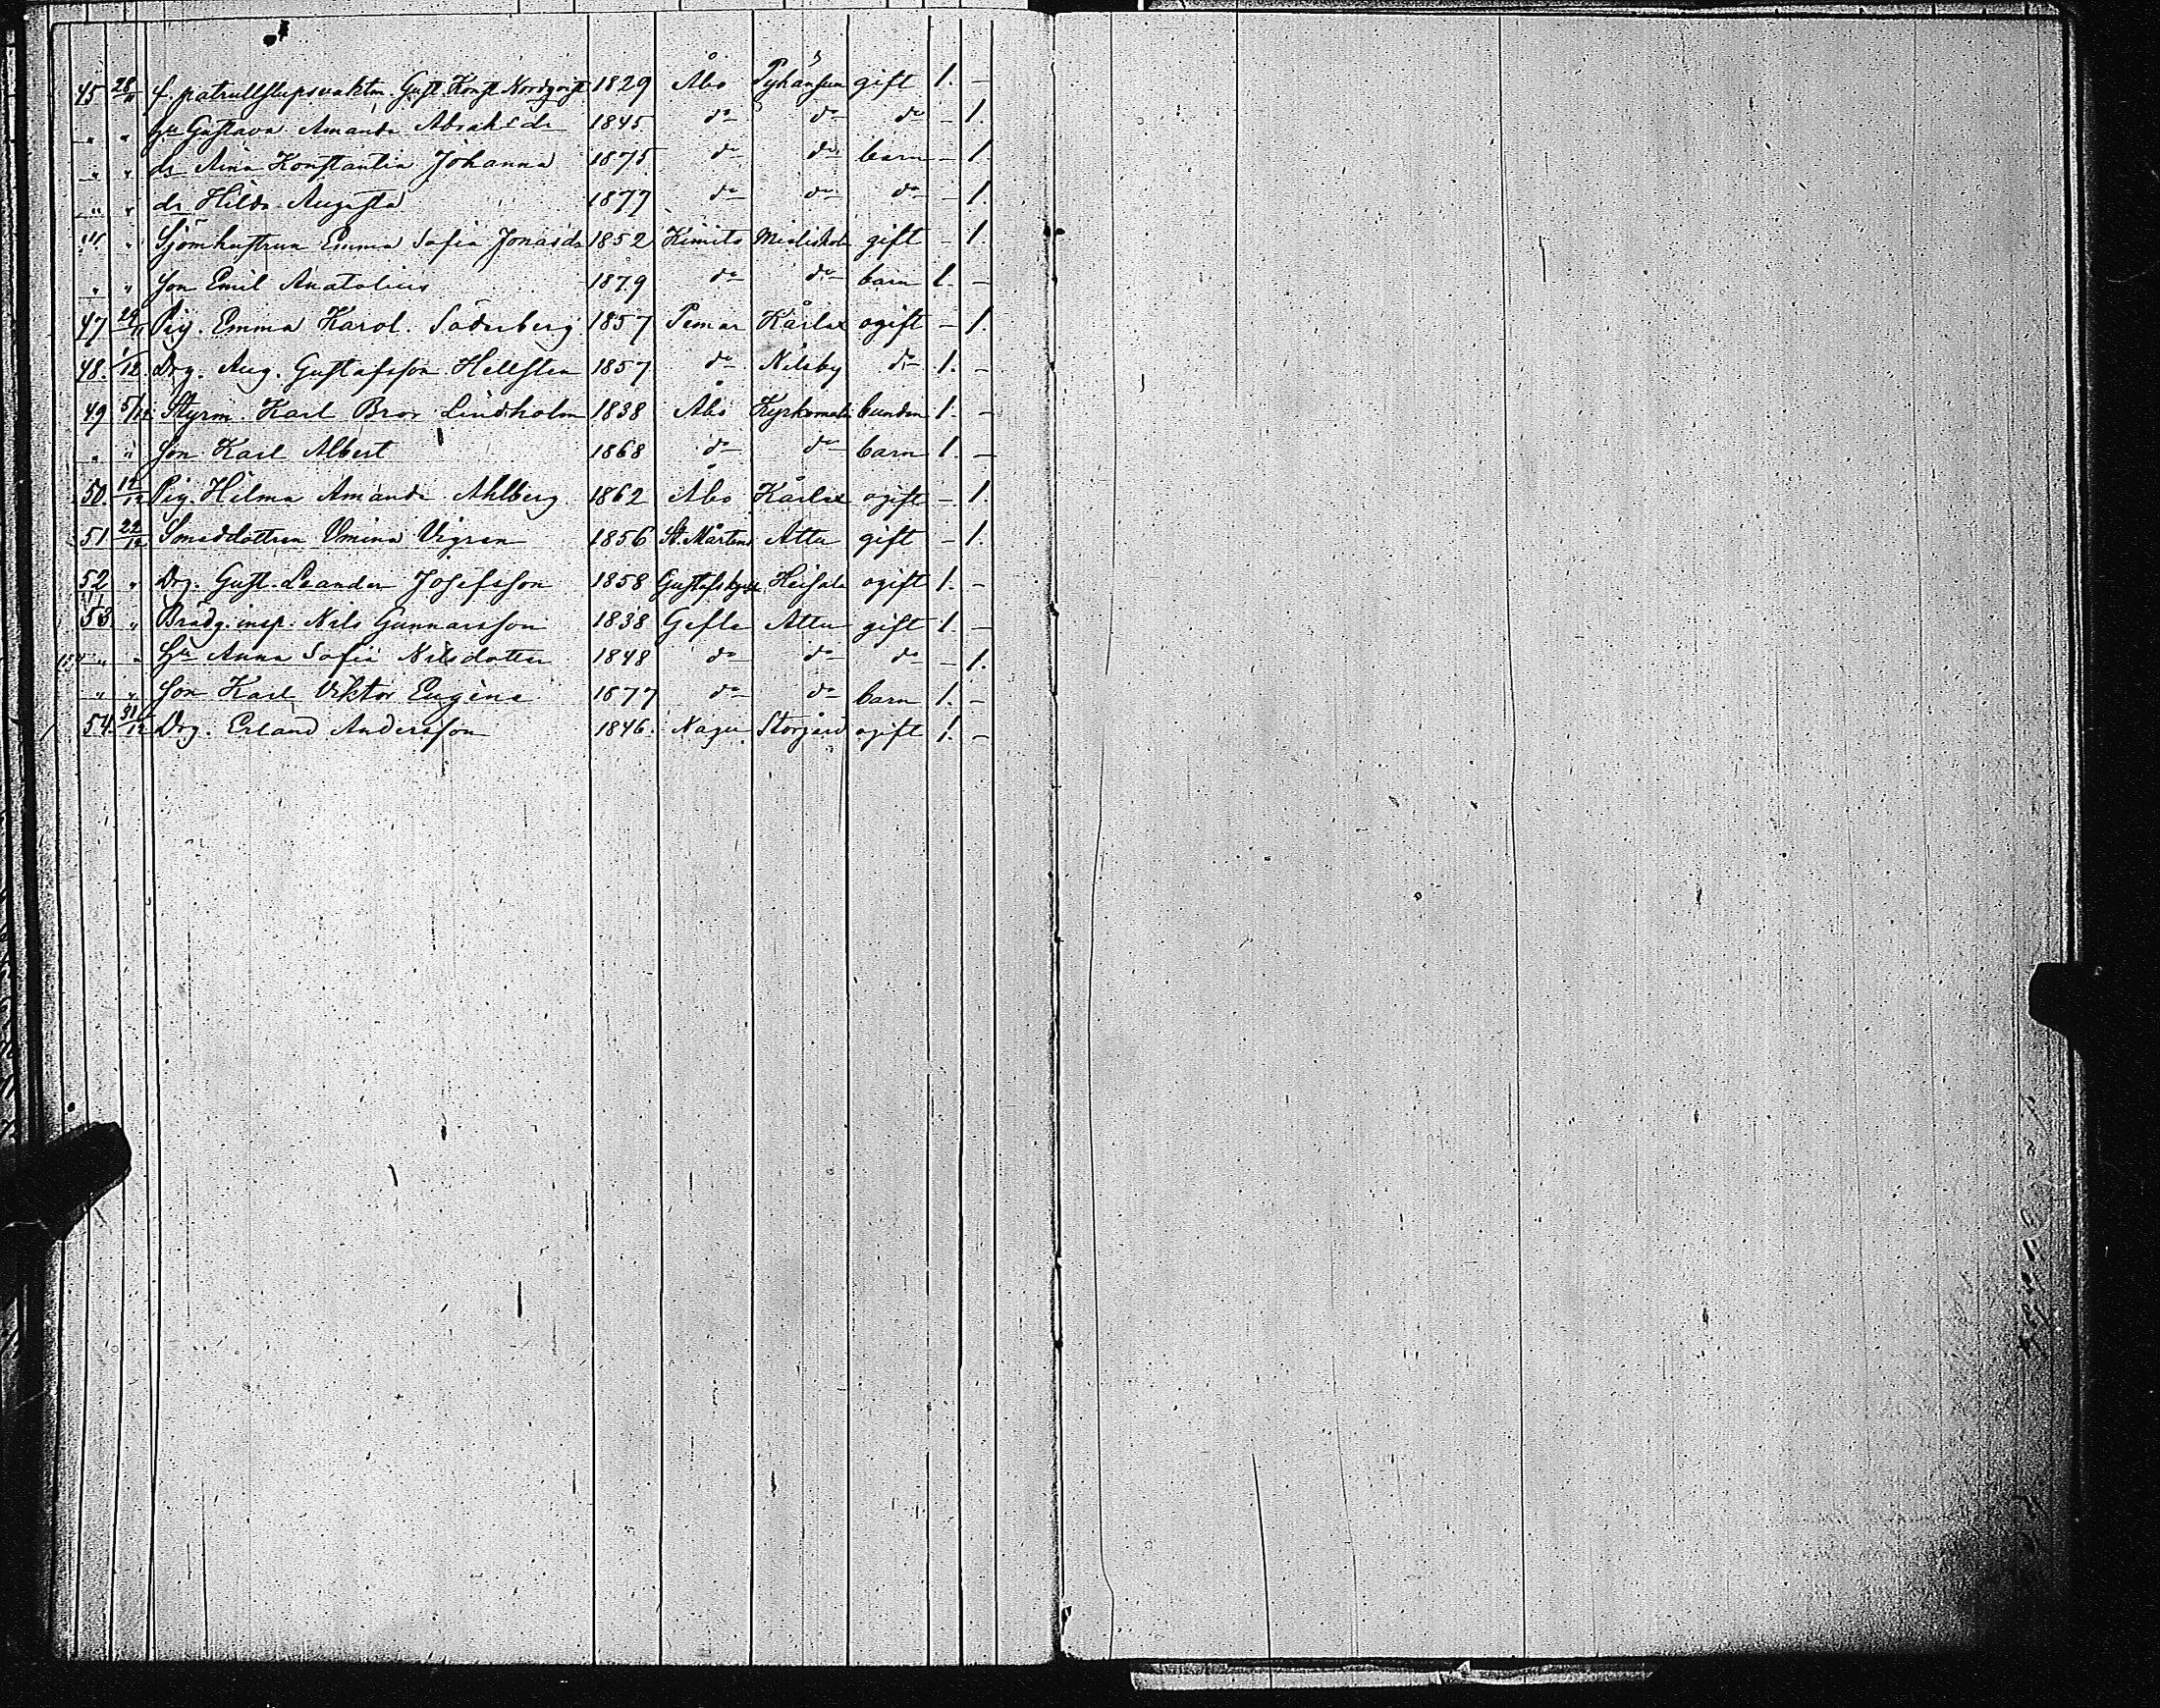 45 28/11 f. patrullslupsvaktm. Gust. Konst. Nordqvist 1829 Åbo gift 1. –
" " hu Gustava Amanda Abrahsdr 1845 do do do – 1.
" " dr Aina Konstantia Johanna 1875 do do barn – 1.
" " dr Hilda Augusta 1877 do do do – 1.
" " Sjömhustrun Emma Sofia Jonasdr 1852 Kimito gift – 1.
" " Son Emil Anatolius 1879 do do barn 1. –
47 29/11 Pig. Emma Karol. Söderberg 1857 Pemar Kårlax ogift – 1.
48. 1/12 Drg. Aug. Gustafsson Hellsten 1857 do Nilsby do 1. –
49 5/12 Styrm. Karl Bror Lindholm 1838 Åbo 1. –
" " Son Karl Albert 1868 do do barn 1. –
50. 12/12 Pig. Hilma Amanda Ahlberg 1862 Åbo Kårlax ogift – 1.
51 22/12 Smeddottren Vigren 1856 St. Mårtens Attu gift – 1.
52 " Drg. Gust. Leander Josefsson 1858 Heisala ogift 1. –
53 " Brädg. insp. Nils Gunnarsson 1838 Gefle Attu gift 1. –
" " Hu Anna Sofia Nilsdotter 1848 do do do – 1.
" " Son Karl Viktor Eugène 1877 do do barn 1. –
54. 31/12 Drg. Erland Andersson 1846. Nagu Storgård ogift 1. –